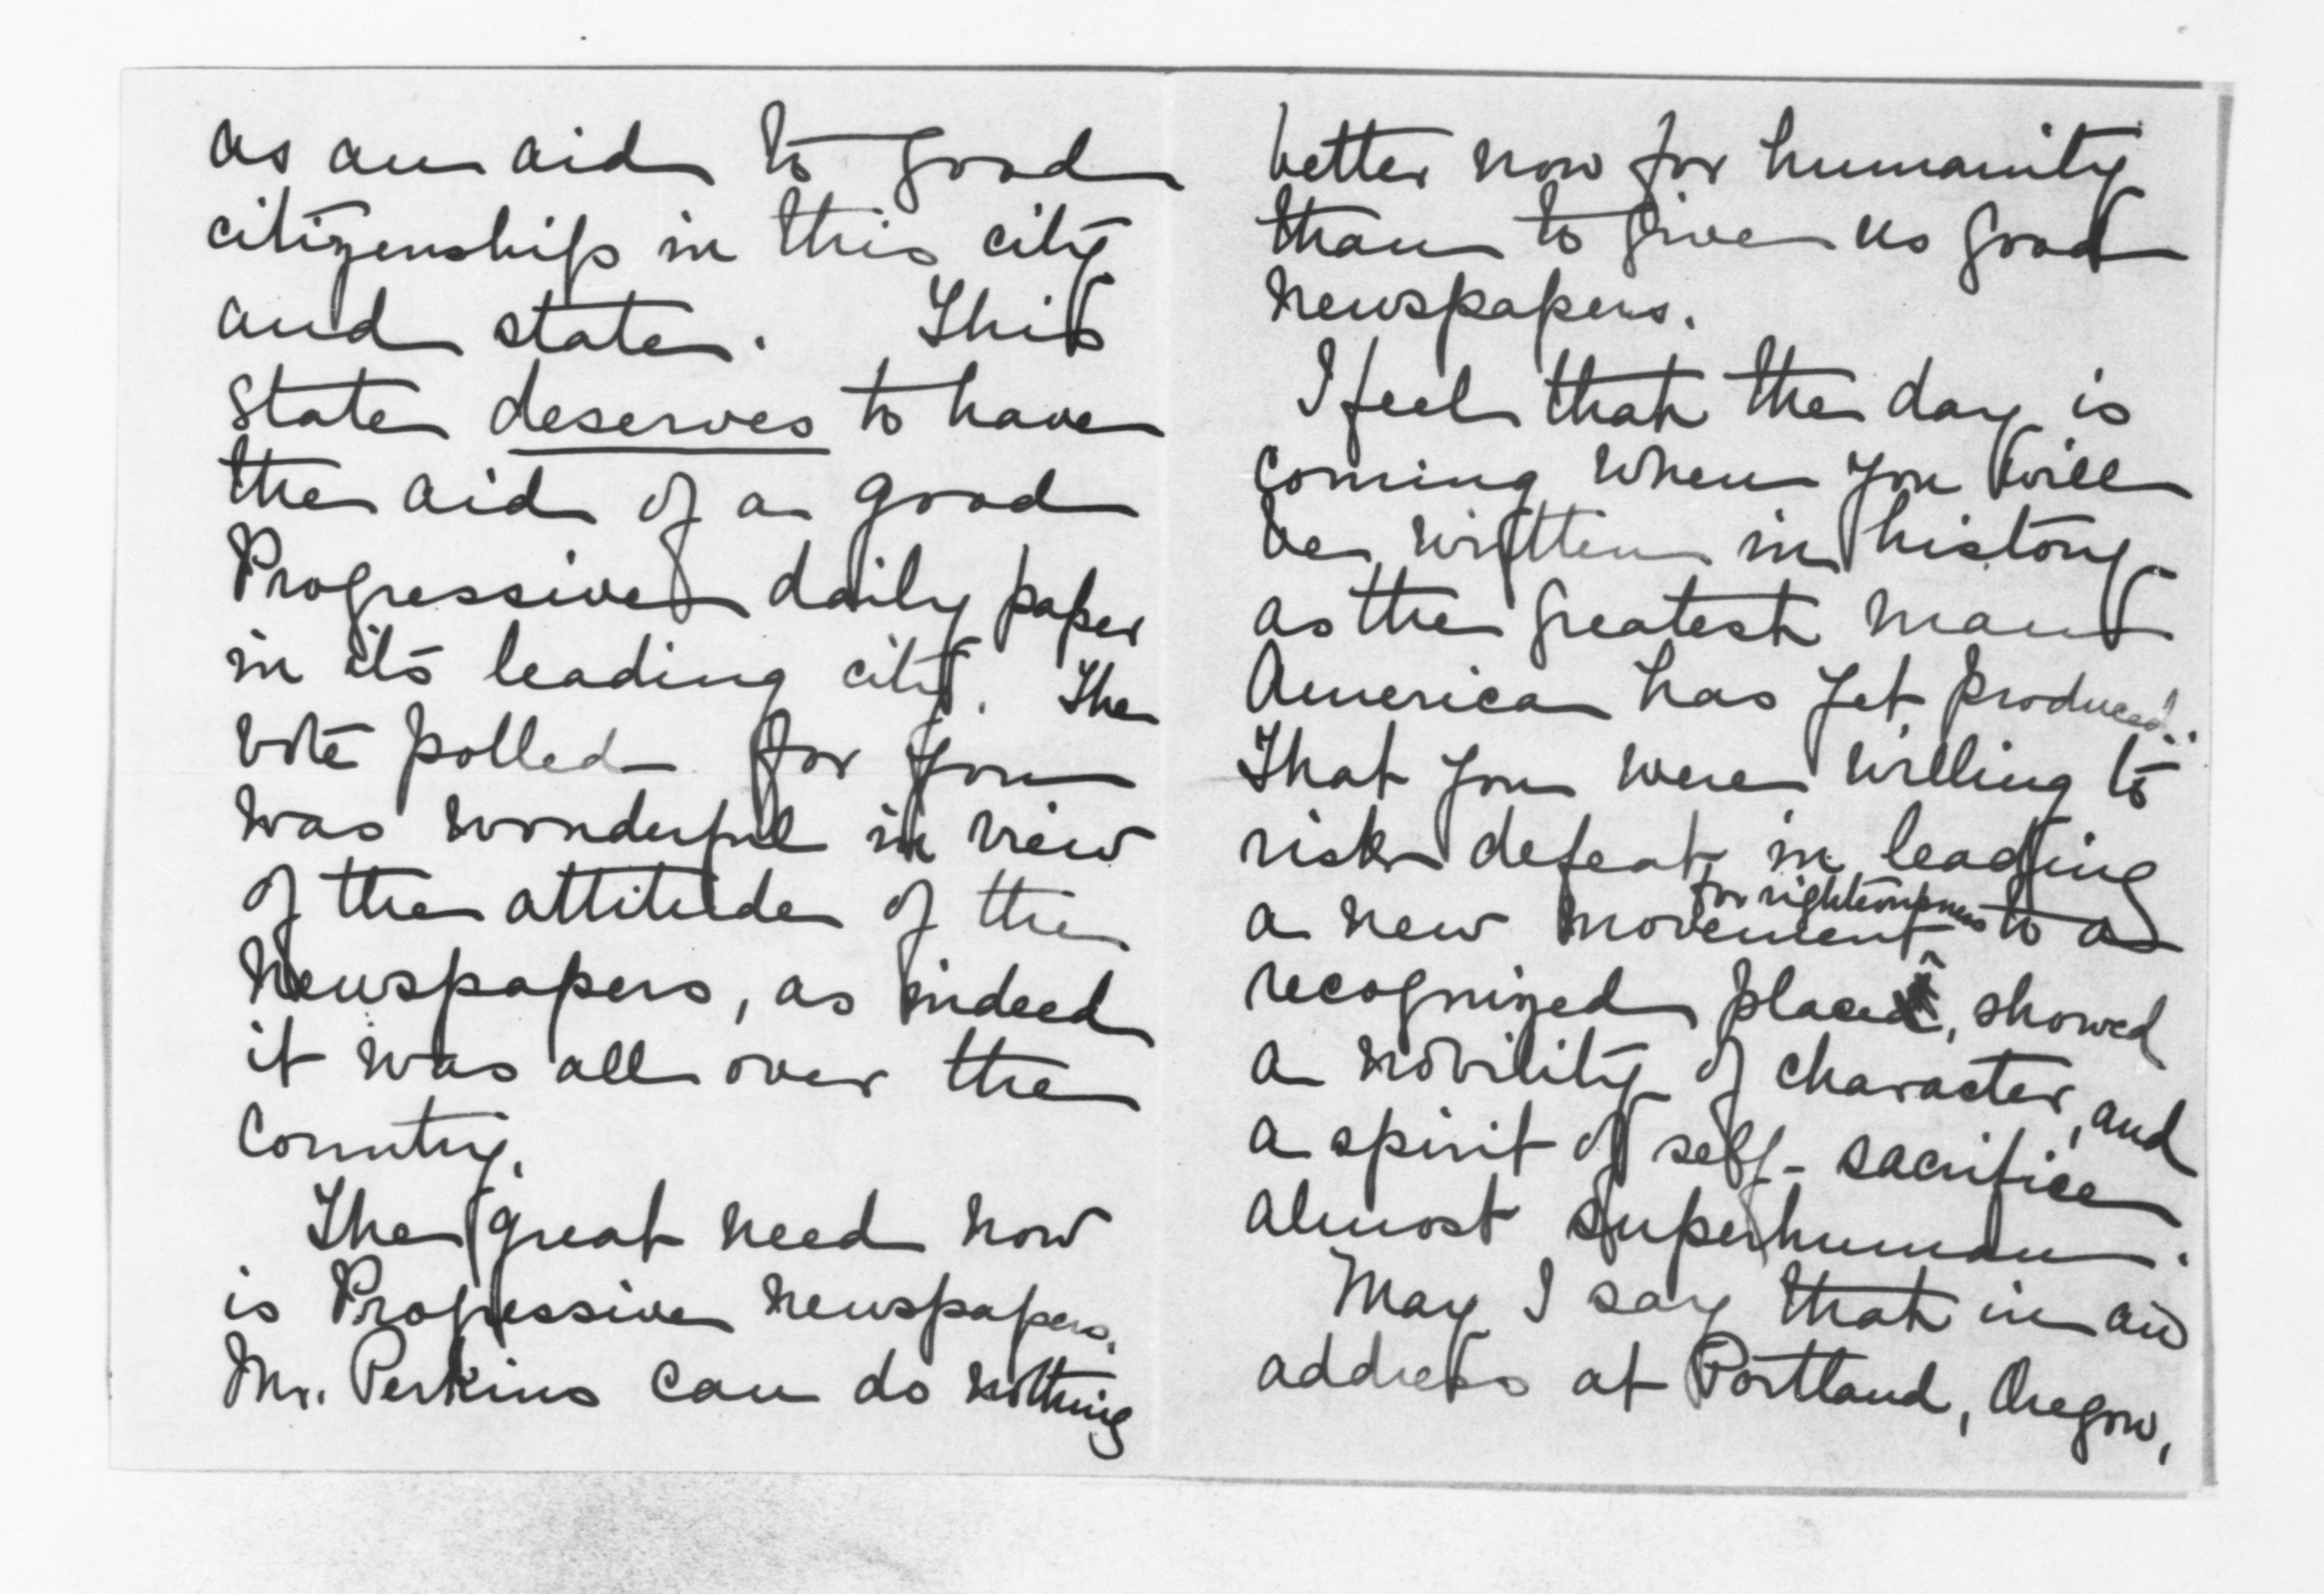 as an aid to good
citizenship in this city
and state. This
state deserves to have
the aid of a good
Progressive daily paper
in its leading city. The
vote polled for you
was wonderful in view
of the attitude of the
newspapers, as indeed
it was all over the
country.
The great need now
is Progressive newspapers.
Mr. Perkins can do nothing
better now for humanity
than to give us good
newspapers.
I feel that the day is
coming when you will
be written in history
as the greatest man
America has yet produced.
That you were willing to
risk defeat in leading
for righteousness
a new movement to a
recognized place, showed
a nobility of character, and
a spirit of self-sacrifice
almost superhuman.
May I say that in an
address at Portland, Oregon,